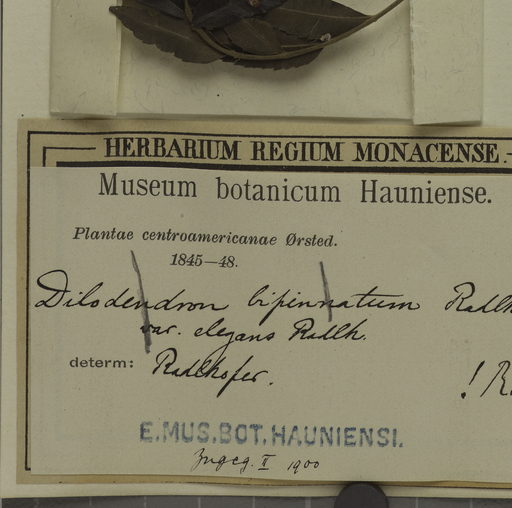 HERBARIUM REGIUM MONACENSE.
Museum botanicum Hauniense.
Plantae centroamericanae Ørsted.
1845—48.
Dilodendron bipinnatum Radlk
var. elegans Radlk.
determ: Radlkofer.
! R
E.MUS.BOT.HAUNIENSI.
Zugeg. II 1900